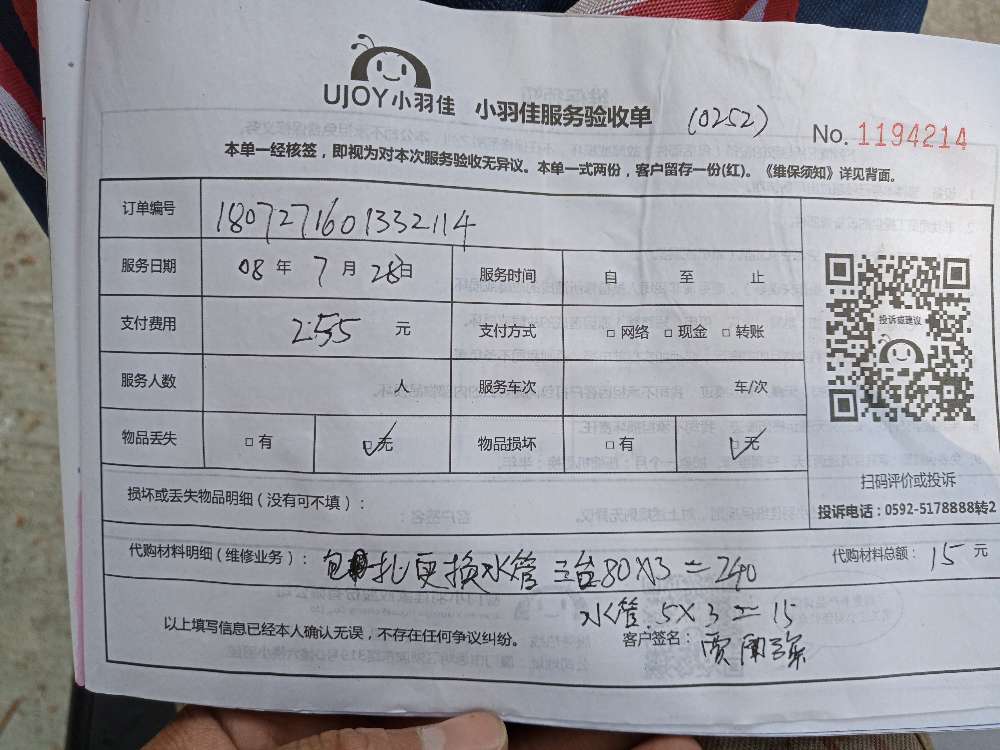 UJOY小羽佳 小羽佳服务验收单 (0252) No. 1194214
本单一经核签，即视为对本次服务验收无异议。本单一式两份，客户留存一份(红)。《维保须知》详见背面。
订单编号 1807271601332114
服务日期 08 年 7 月 28 日 服务时间 自 至 止
投诉或建议
支付费用 255 元 支付方式 □ 网络 □ 现金 □ 转账
服务人数 人 服务车次 车/次
物品丢失 □ 有 □ 无 物品损坏 □ 有 □ 无
扫码评价或投诉
损坏或丢失物品明细（没有可不填）：
投诉电话：0592-5178888转2
代购材料明细（维修业务）： 包扎更换水管 三台80×3=240
代购材料总额： 15 元
水管.5×3=15
以上填写信息已经本人确认无误，不存在任何争议纠纷。 客户签名：